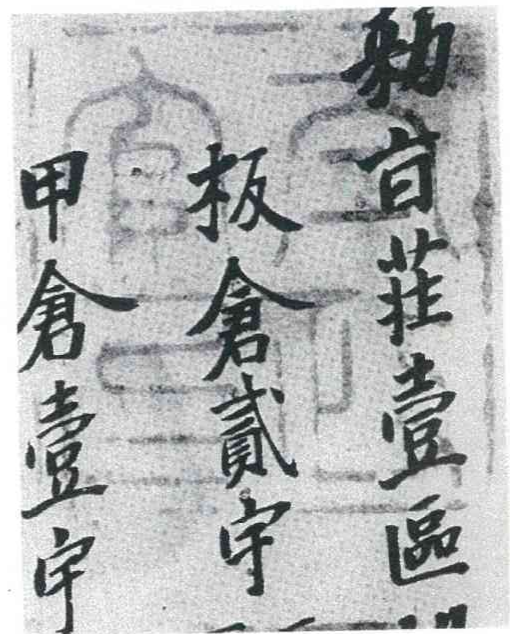 勅旨荘壹區
板倉貳宇
甲倉壹宇